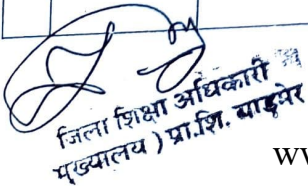 जिला शिक्षा अधिकारी
मुख्यालय ) प्रा.शि. बाड़मेर
ww